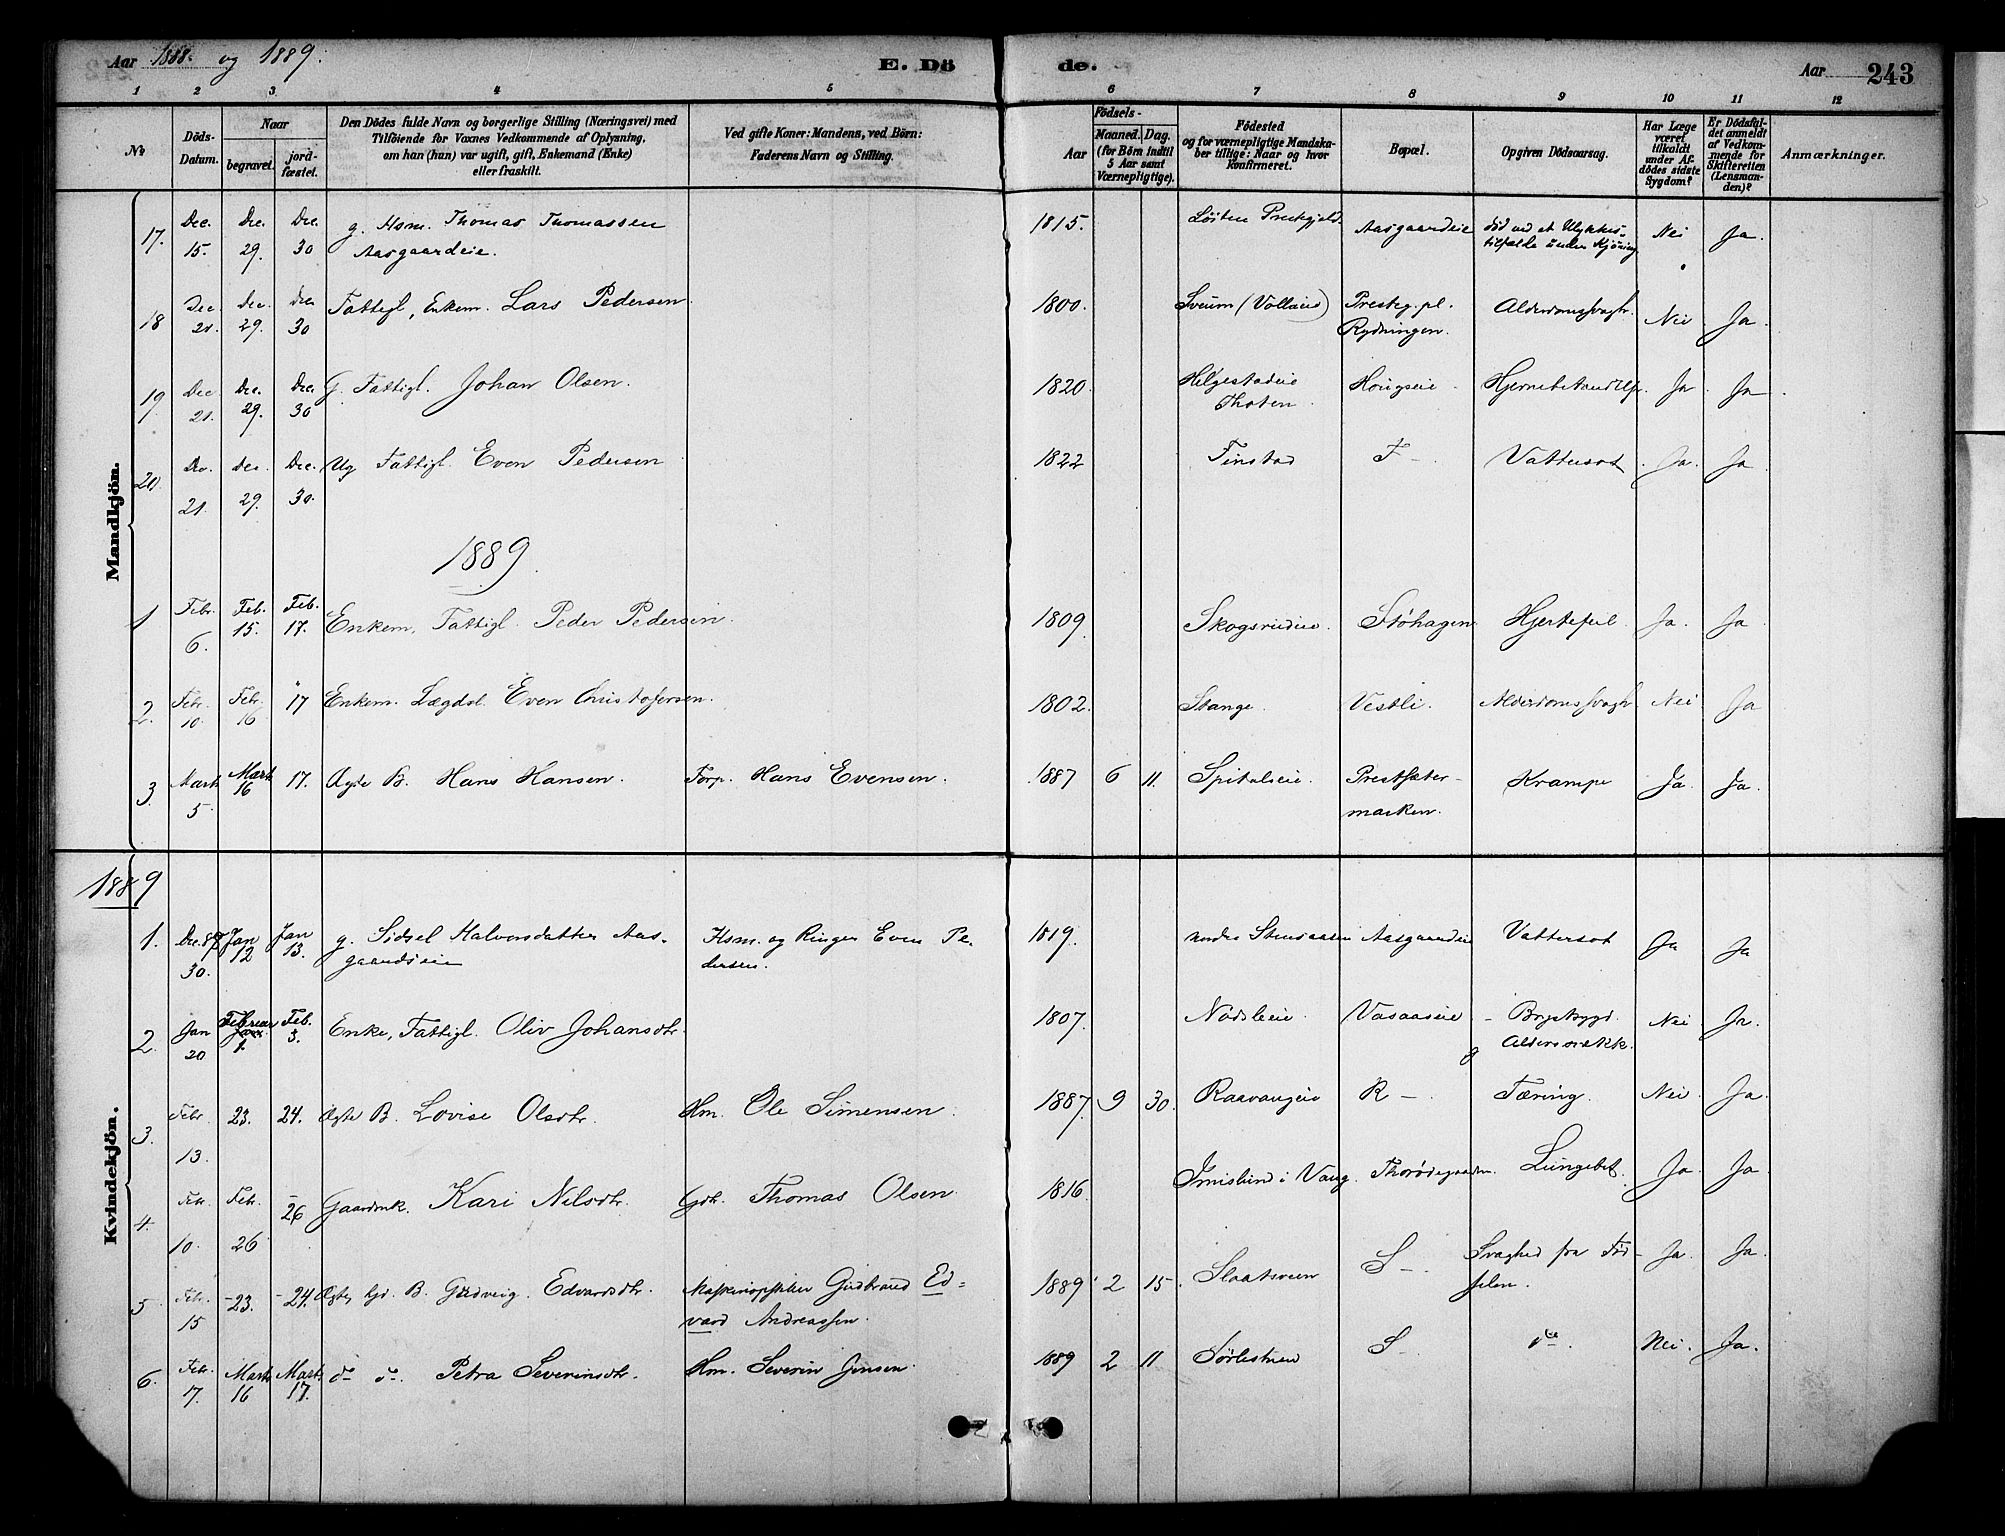 Aar 1888 og 1889.
E. Dö
de.
Aar
243
1 2 3. 4 5 6 7 8 9 10 11 12
No
Döds-Datum.
Naar
begravet.
jordfæstet.
Den Dödes fulde Navn og borgerlige Stilling (Næringsvei) med
Tilföiende for Voxnes Vedkommende af Oplysning,
om han (hun) var ugift, gift, Enkemand (Enke)
eller fraskilt.
Ved gifte Koner: Mandens, ved Börn:
Faderens Navn og Stilling.
Födsels-
Aar
Maaned. Dag.
(for Börn indtil
5 Aar samt
Værnepligtige).
Födested
og for værnepligtige Mandska-
ber tillige: Naar og hvor
konfirmeret.
Bopæl.
Opgiven Dödsaarsag.
Har Læge
været
tilkaldt
under Af-
dödes sidste
Sygdom?
Er Dödsfal-
det anmeldt
af Vedkom-
mende for
Skifteretten
(Lensman-
den)?
Anmærkninger.
Mandkjön.
17. Dec. 15. Dec. 29. Dec. 30 g. Hsm. Thomas Thomassen 1815. Løiten Aasgaardeie død ved et Ulykkes- Nei Ja.
Aasgaardeie. tilfælde under Kjøring
18 Dec 21. Dec. 29. Dec 30 Fattigl, Enkem. Lars Pedersen 1800. Sveum Presteg. pl. Nei Ja.
Rydningen.
19 Dec 21. Dec. 29. Dec. 30 G. Fattigl. Johan Olsen. 1820. Helgestadeie Hougseie Ja Ja
Thoten
20. Dec. 21. Dec. 29. Dec. 30. Ug Fattigl. Even Pedersen 1822 Finstad F - Vattersot Ja. Ja
1889.
1 Febr. 6. Feb. 15. Feb. 17. Enkem. Fattigl. Peder Pedersen. 1809. Skogsrudeie. Støhagen Hjertefeil. Ja. Ja
2. Febr. 10. Febr. 16 " 17 Enkem. Lægdsl. Even Christofersen. 1802. Stange. Vestli. Alderdomssvagh Nei Ja
3. Marts 5. Marts 16 17. Ægte B. Hans Hansen. Forp. Hans Evensen. 1887 6 11. Spitalseie. Prestsæter- Krampe Ja. Ja.
marken.
1889
Kvindekjön.
1. Dec. 88 30. Jan 12 Jan 13. g. Sidsel Halvorsdatter Aas- Hsm. og Ringer Even Pe- 1819. nordre Stensaasen Aasgaardeie Vattersot Ja Ja
gaardseie dersen.
2. Jan 20 Februar 1. Feb. 3. Enke, Fattigl. Oliv Johansdtr. 1807. Vasaaseie Nei Ja.
3. Febr. 13. 23. 24. Ægte B. Lovise Olsdtr. Hm. Ole Simensen. 1887. 9 30. Raavangeie R -. Tæring. Nei. Ja.
4. Febr. 10. Febr. 26 - 26 Gaardmk. Kari Nilsdtr. Gdr. Thomas Olsen 1816. Imislund i Vang. Thorødegaarden. Lungebet. Ja Ja
5. Febr. 15 - 23. - 24. Ægte Gd. B. Gudveig. Edvardsdtr. Maskinopsætter Gudbrand Ed- 1889 2 15. Slaatsveen S -. Svaghed fra Fød- Ja. Ja.
vard Andreassen. selen.
6. Febr. 17. Marts 16 Marts 17. do do. Petra Severinsdtr. Hm. Severin Jensen. 1889 2 11 S -. do Nei. Ja.